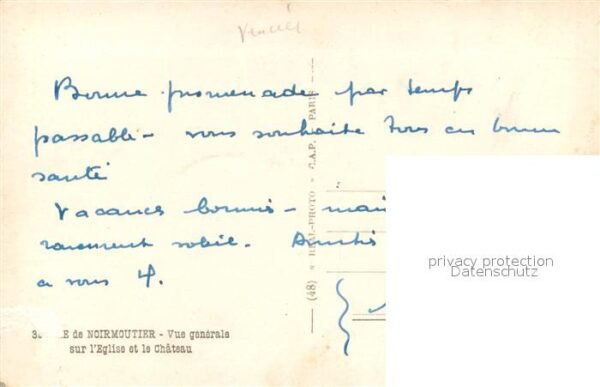 Vendée
Bonne promenade par temps
passable - vous souhaite tous en bonne
santé
Vacances bonnes - mai
rarement soleil. Amitiés
a vous 4.
(48) REAL-PHOTO C.A.P. PARIS
privacy protection
Datenschutz
3 E de NOIRMOUTIER - Vue générale
sur l'Eglise et le Château